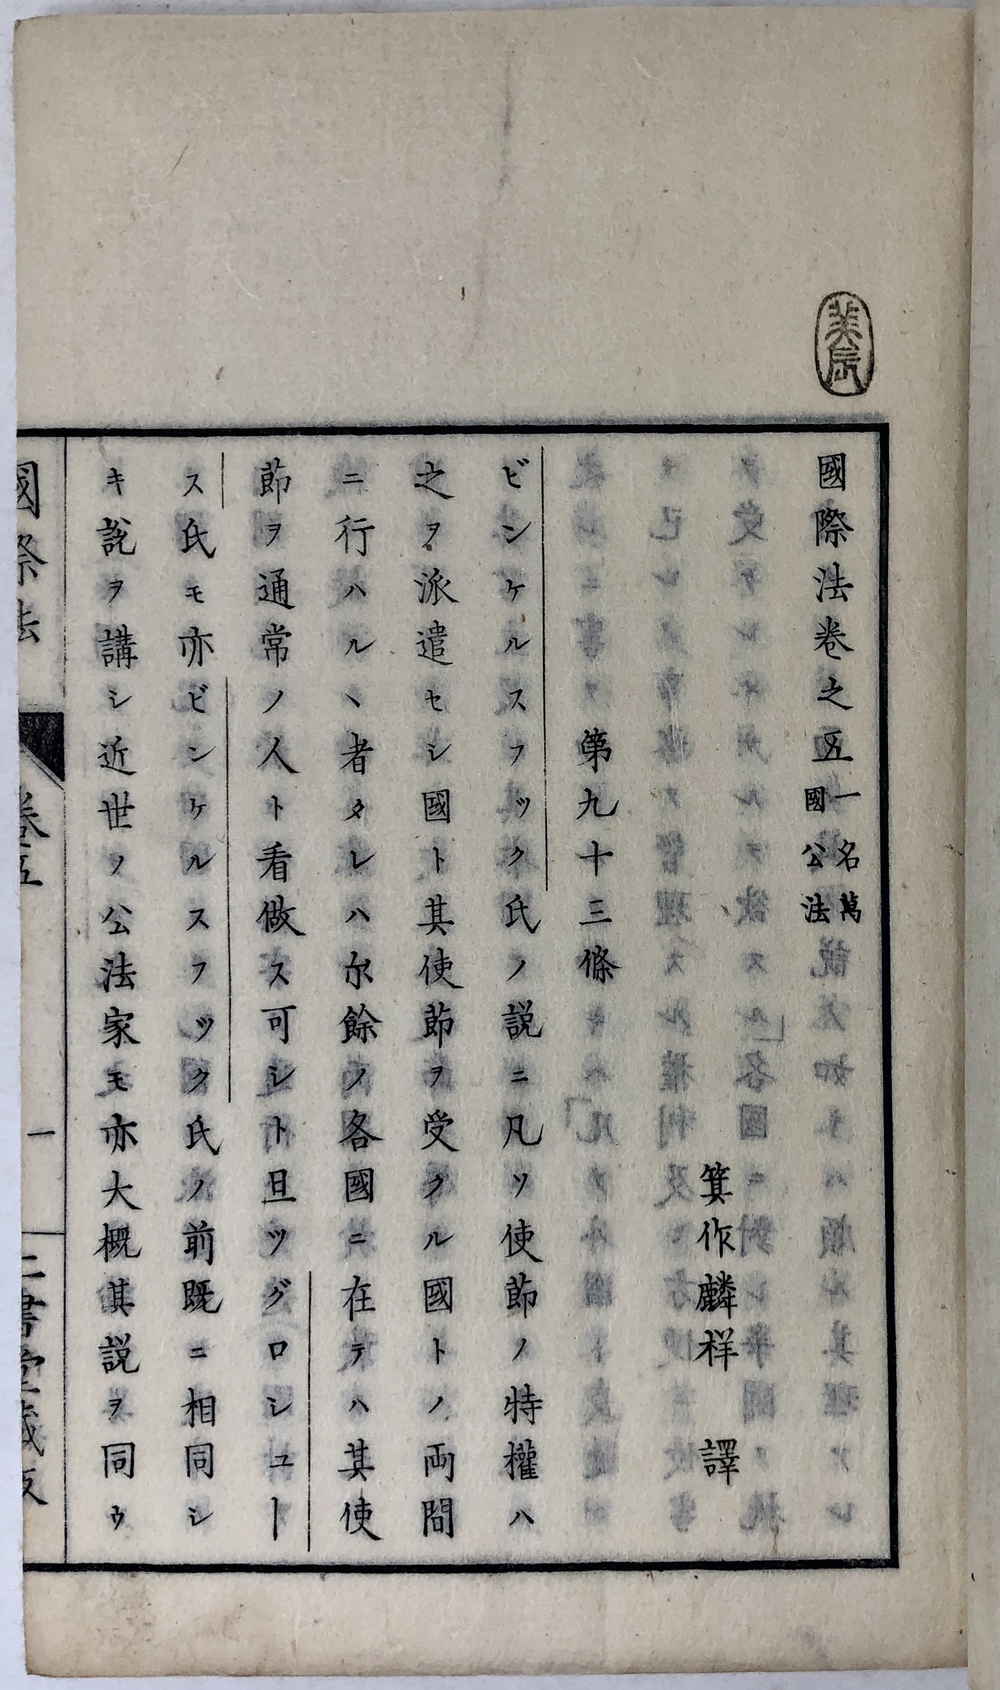 國際法卷之五 一名萬國公法
箕作麟祥 譯
第九十三條
ビンケルスフック氏ノ説ニ凡ソ使節ノ特權ハ
之ヲ派遣セシ國ト其使節ヲ受クル國トノ両間
ニ行ハルヽ者タレハ尔餘ノ各國ニ在テハ其使
節ヲ通常ノ人ト看做ス可シト且ツグロシュー
ス氏モ亦ビンケルスフック氏ノ前既ニ相同シ
キ説ヲ講シ近世ノ公法家モ亦大概其説ヲ同ウ
國際法 卷五 一 二書堂藏版